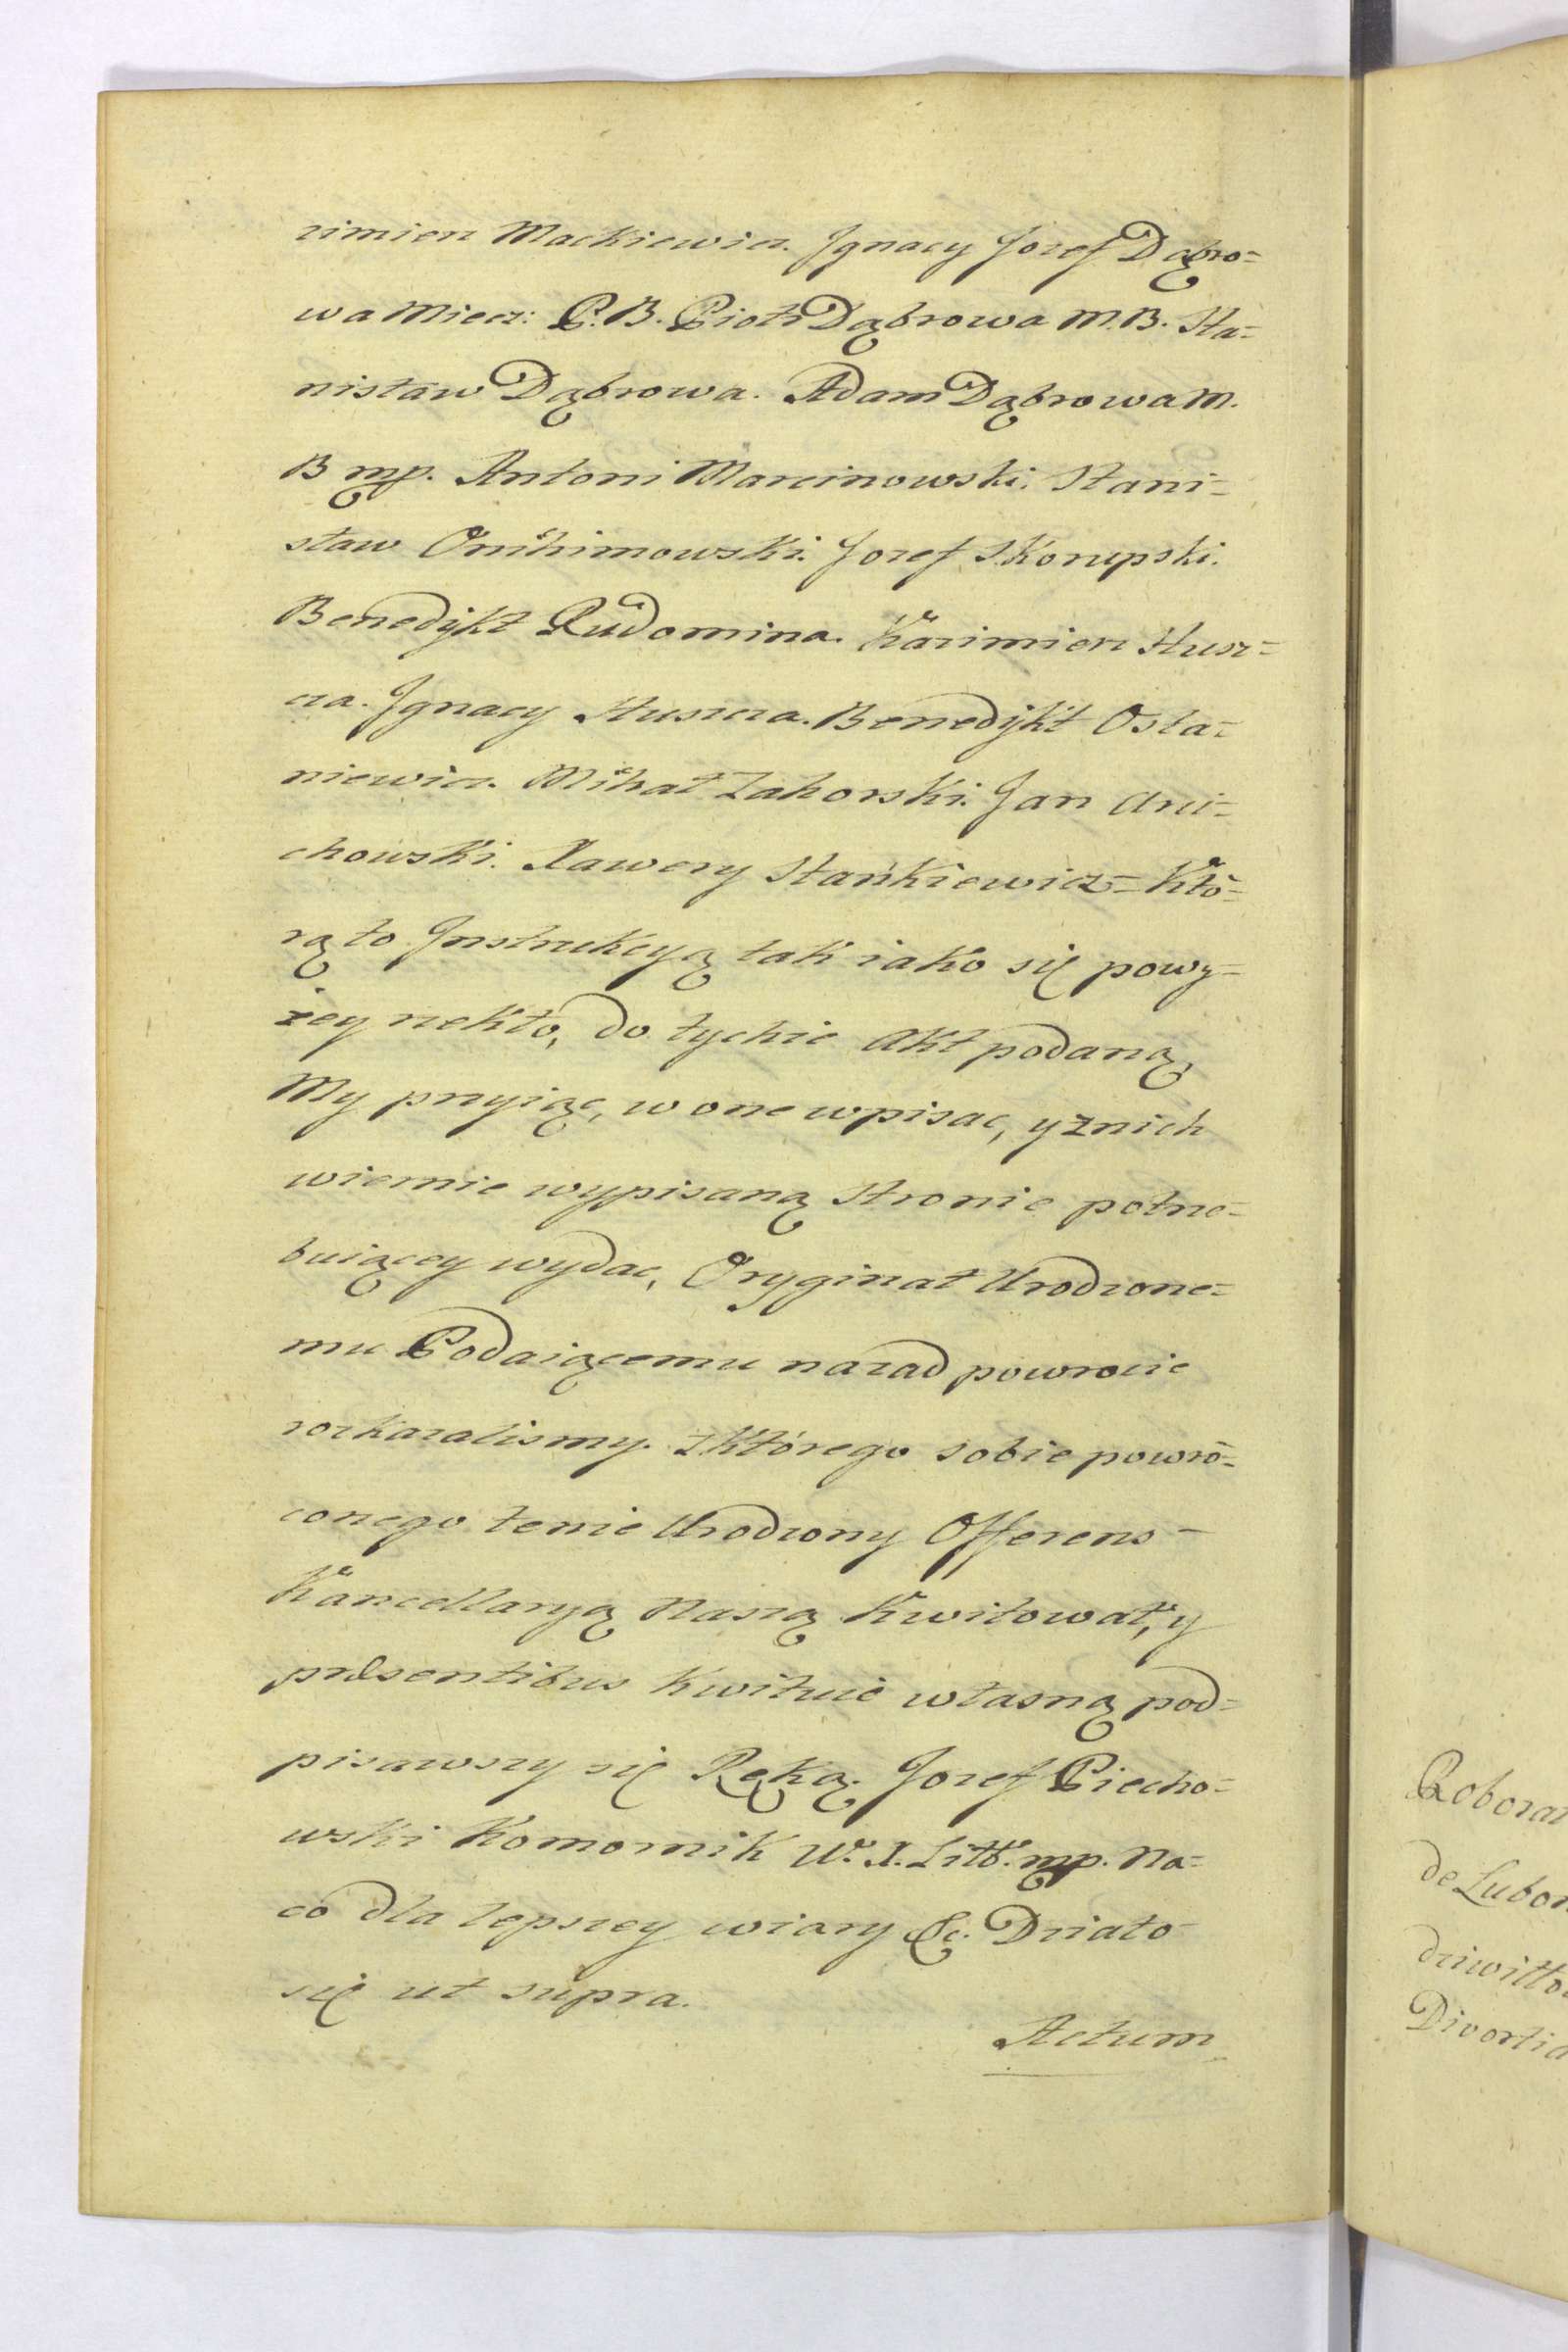 zimierz Mackiewicz. Jgnacy Jozef Dąbro=
wa Miecz: P. B. Piotr Dąbrowa M. B. Sta=
nisław Dąbrowa. Adam Dąbrowa M.
B mp. Antoni Marcinowski. Stani=
sław Onichimowski. Jozef Skorupski.
Benedykt Rudomina. Kazimierz Huszcza=
cza. Jgnacy Huszcza. Benedykt Osta=
niewicz. Michał Zahorski. Jan Ani=
chowski. Xawery Stańkiewicz = Któ=
rą to Jnstrukcyą tak iako się powy=
żey rzekło, do tychże Akt podaną
My przyiąc, w one wpisac, y z nich
wiernie wypisaną Stronie potrze=
buiącey wydac, Oryginał Urodzone=
mu Podaiącemu nazad powrocic
rozkazalismy. z którego sobie powró=
conego tenże Urodzony Offerens =
Kancellaryą Naszą Kwitował, y
præsentibus Kwituie własną pod=
pisawszy się Ręką. Jozef Piecho=
wski Komornik W. X. Litt. mp. Na=
co dla lepszey wiary &c. Działo
się ut supra.
Actum
Roborar
de Lubor
dziwiłło
Divortia